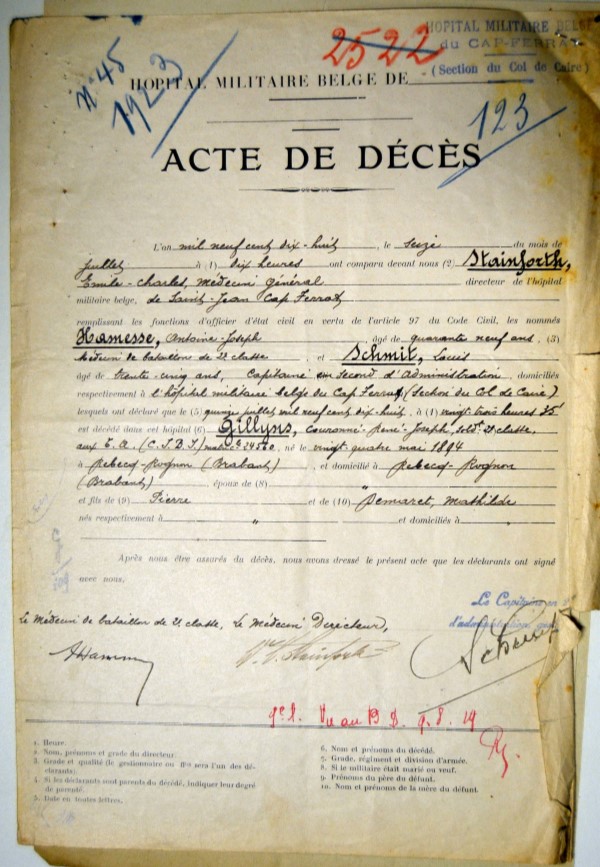 2522
HOPITAL MILITAIRE BELGE
du CAP-FERRAT
(Section du Col de Caire)
N° 45
1923
HOPITAL MILITAIRE BELGE DE
123
ACTE DE DÉCÈS
L'an mil neuf cent dix-huit, le seize du mois de
juillet à (1) dix heures ont comparu devant nous (2) Stainforth,
Emile-Charles, Médecin général directeur de l'hôpital
militaire belge, de Saint-Jean Cap Ferrat
remplissant les fonctions d'officier d'état civil en vertu de l'article 97 du Code Civil, les nommés
Hamesse, Antoine-Joseph, âgé de quarante neuf ans, (3)
Médecin de bataillon de 2e classe, et Schmit, Louis
âgé de trente-cinq ans, Capitaine en Second d'Administration, domiciliés
respectivement à l'hôpital militaire belge du Cap Ferrat (Section du Col de Caire)
lesquels ont déclaré que le (5) quinze juillet mil neuf cent dix-huit, à (1) vingt trois heures 35'
est décédé dans cet hôpital (6) Gillyns, Couronné-René-Joseph, soldt 2e classe,
aux T.A. (C.I.B.I.) mat 24560, né le vingt quatre mai 1894
à Rebecq-Rognon (Brabant), et domicilié à Rebecq-Rognon
(Brabant), époux de (8) "
et fils de (9) Pierre et de (10) Demaret, Mathilde
nés respectivement à " et domiciliés à "
Après nous être assurés du décès, nous avons dressé le présent acte que les déclarants ont signé
avec nous,
Le Capitaine en
d'administration
Le Médecin de bataillon de 2e classe, Le Médecin Directeur,
1. Heure.
2. Nom, prénoms et grade du directeur.
3. Grade et qualité (le gestionnaire ou fons sera l'un des déclarants)
4. Si les déclarants sont parents du décédé, indiquer leur degré
de parenté.
5. Date en toutes lettres.
6. Nom et prénoms du décédé.
7. Grade, régiment et division d'armée.
8. Si le militaire était marié ou veuf.
9. Prénoms du père du défunt.
10. Nom et prénoms de la mère du défunt.